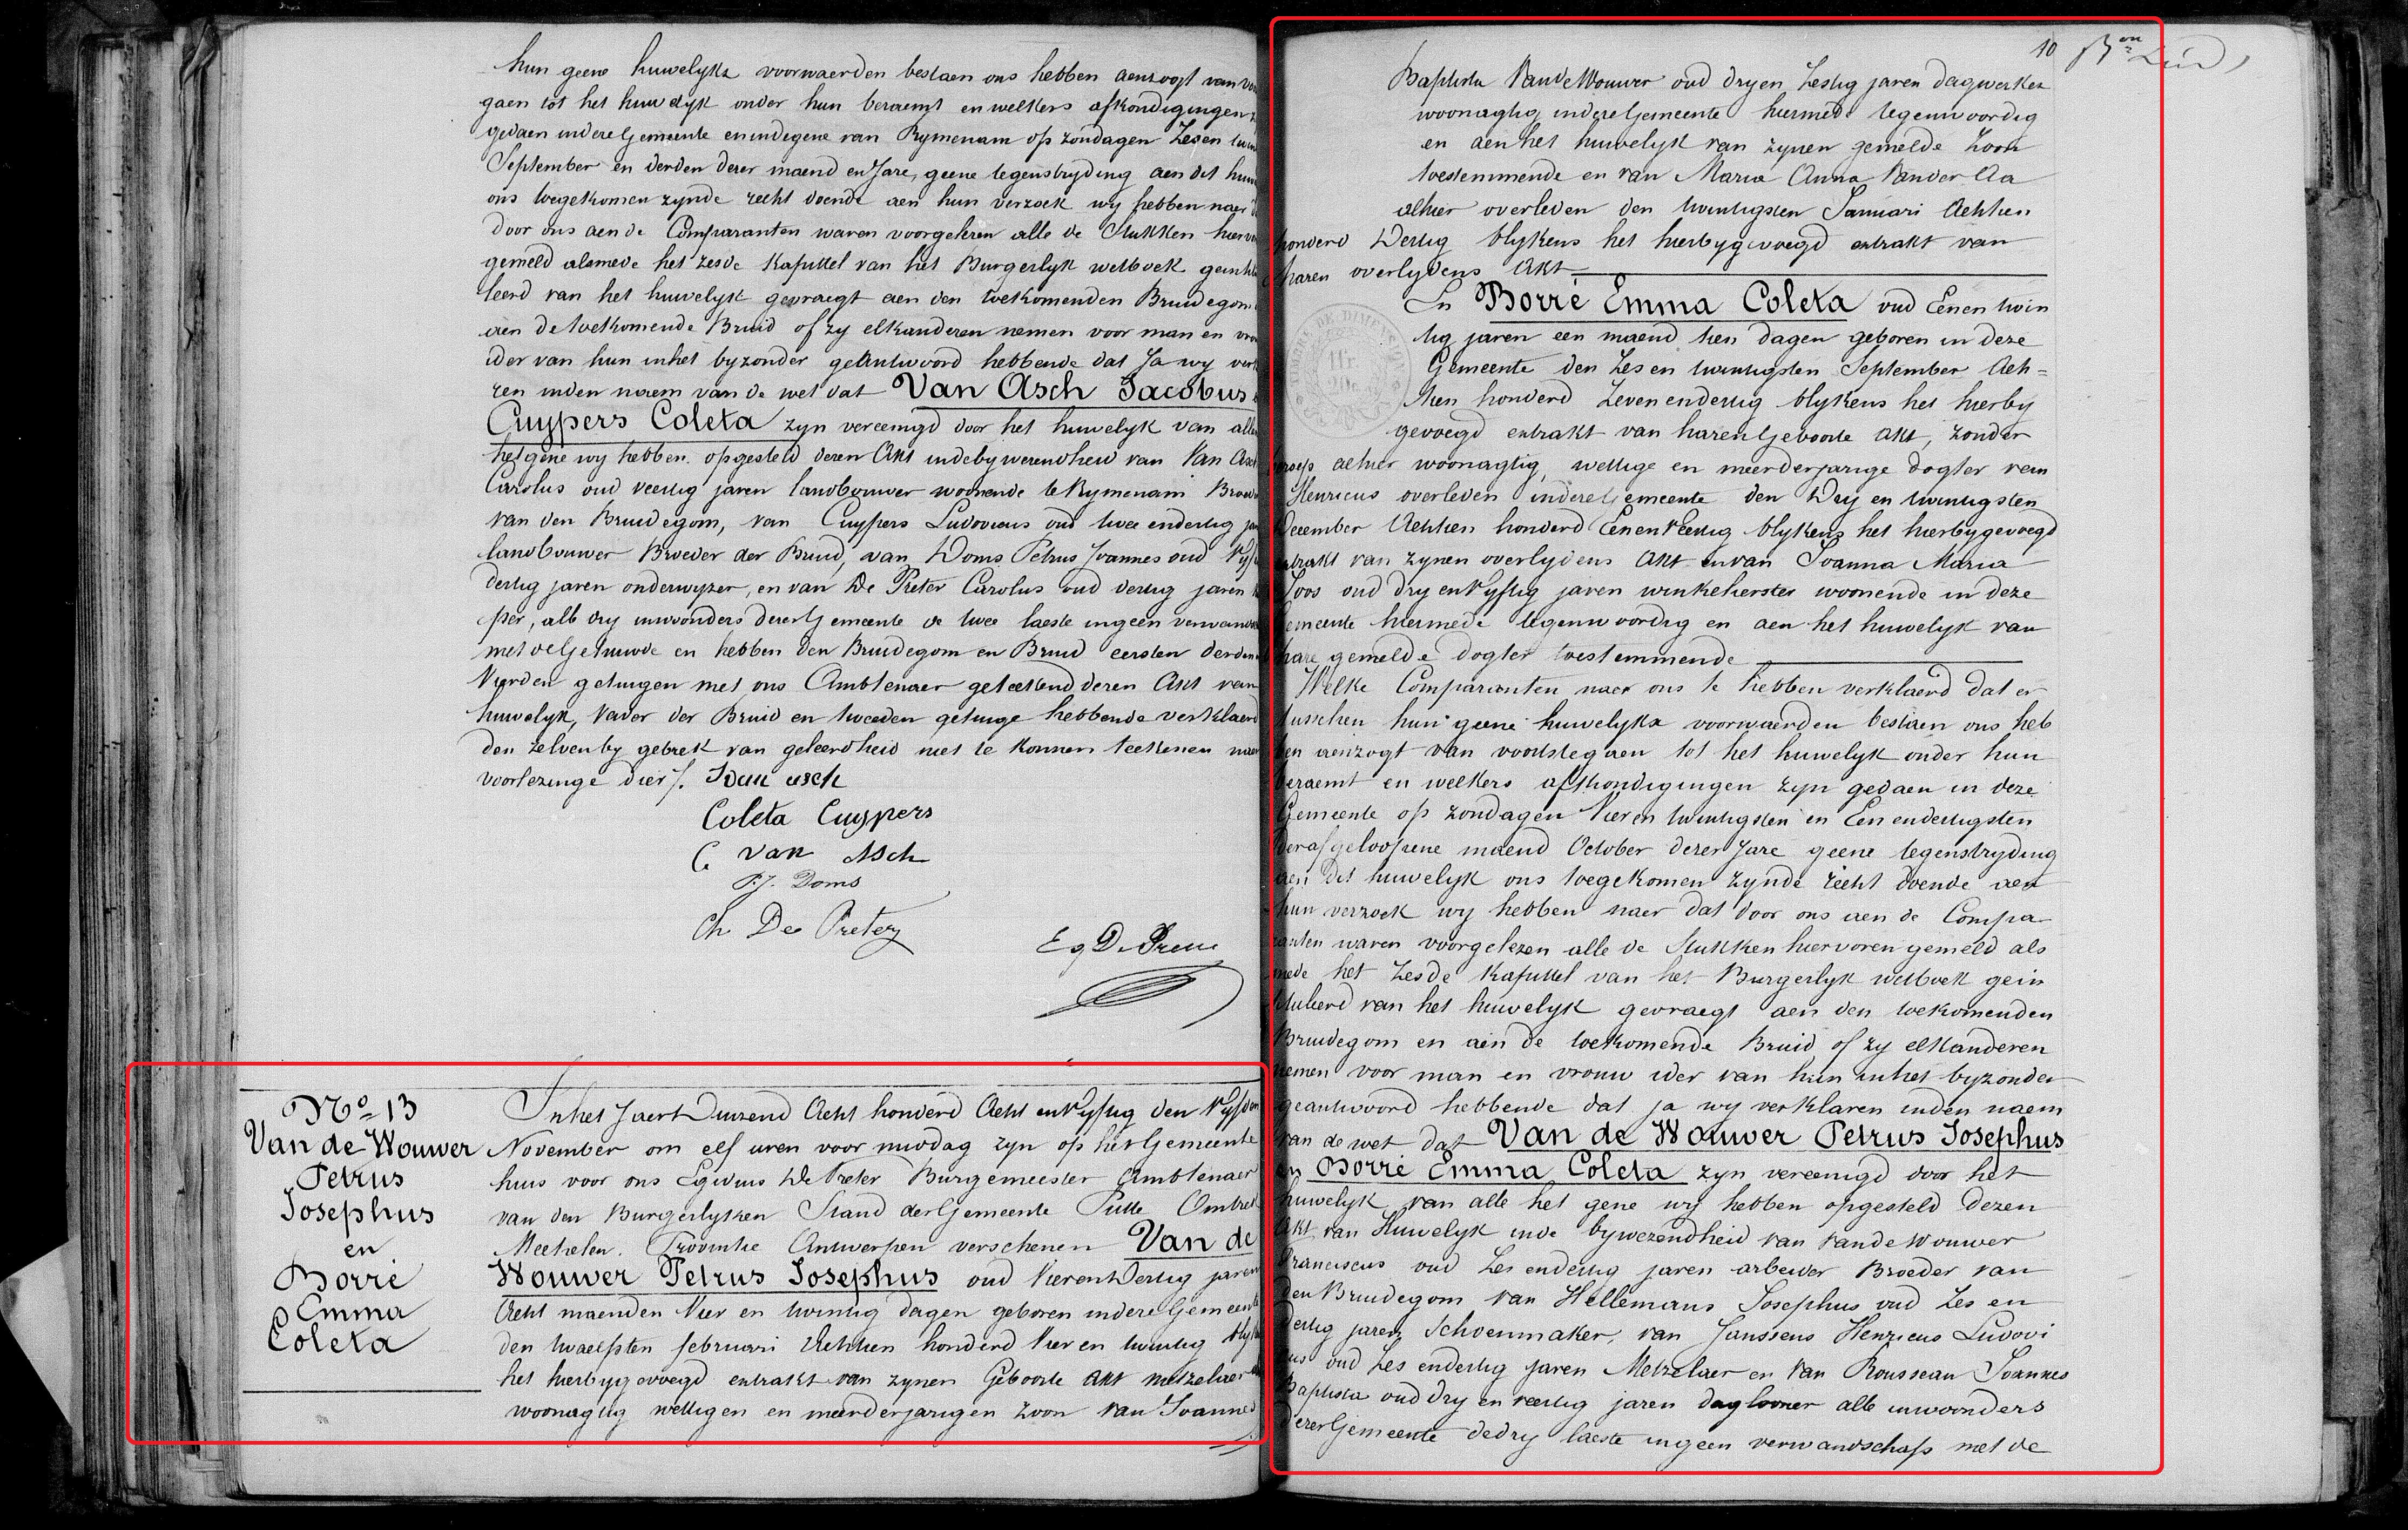 hun geene huwelyks voorwaerden bestaen ons hebben aenzogt van
gaen tot het huwelyk onder hun beraemt en welkers afkondigingen
gedaen indere Gemeente en in degene van Rymenam op zondagen Zes en
September en derden dezer maend en Jare, geene tegenstryding aen dit
ons toegekomen zynde recht doende aen hun verzoek wy hebben naer
door ons aen de Comparanten waren voorgelezen alle de Stukken
gemeld alsmede het zesde Kapittel van het Burgerlyk wetboek
leerd van het huwelyk gevraegt aen den toekomenden Bruidegom
aen de toekomende Bruid of zy elkanderen nemen voor man en
ider van hun in het byzonder geantwoord hebbende dat Ja wy
ren in den naem van de wet dat Van Asch Jacobus
Cuypers Coleta zyn vereenigd door het huwelyk van
het gene wy hebben opgesteld dezen Akt in de bywezendheid van Van
Carolus oud veertig jaren landbouwer woonende te Rymenam
van den Bruidegom, van Cuypers Ludovicus oud twee en dertig
landbouwer Broeder der Bruid, van Doms Petrus Joannes oud
dertig jaren onderwyzer, en van De Preter Carolus oud dertig jaren
per, alle dry inwoonders dezer Gemeente de twee laeste in geen
met de Gehuwde en hebben den Bruidegom en Bruid eersten derden
Vierden getuigen met ons Ambtenaer geteekend dezen Akt van
huwelyk, Vader der Bruid en tweeden getuige hebbende verklaerd
den zelven by gebrek van geleerdheid niet te konnen teekenen naer
voorlezinge dier/. Van asch
Coleta Cuypers
C Van Asch
P.J. Doms
Ch De Preter
Eg De Preter
No 13
Van de Wouwer
Petrus
Josephus
en
Borré
Emma
Coleta
In het Jaer Duizend Acht honderd Acht en Vyftig den Vyfden
November om elf uren voor middag zyn op het Gemeente
huis voor ons Egidius De Preter Burgemeester Ambtenaer
van den Burgerlyken Stand der Gemeente Putte
Mechelen Provintie Antwerpen verschenen Van de
Wouwer Petrus Josephus oud Vier en Dertig jaren
Acht maenden Vier en twintig dagen geboren in dere Gemeente
den twaelfsten februari Achtien honderd Vier en twintig
het hierbygevoegd extrakt van zynen Geboorte Akt metzelaer
woonagtig wettigen en meerderjarigen zoon van Joannes
10
Baptista Van de Wouwer oud dry en Zestig jaren dagwerker
woonagtig in dere Gemeente hiermede tegenwoordig
en aen het huwelyk van zynen gemelde Zoon
toestemmende en van Maria Anna Van der Aa
alhier overleden den twintigsten Januari Achtien
honderd Dertig blykens het hierbygevoegd extrakt van
haren overlydens Akt
En Borré Emma Coleta oud Een en twin
tig jaren een maend tien dagen geboren in deze
Gemeente den Zes en twintigsten September Ach=
tien honderd Zeven en dertig blykens het hierby
gevoegd extrakt van haren Geboorte Akt, zonder
beroep alhier woonagtig, wettige en meerderjarige dogter van
Henricus overleden in dere Gemeente den Dry en twintigsten
December Achtien honderd Een en Veertig blykens het hierbygevoegd
extrakt van zynen overlydens Akt en van Joanna Maria
Joos oud dry en Vyftig jaren winkelierster woonende in deze
Gemeente hiermede tegenwoordig en aen het huwelyk van
hare gemelde dogter toestemmende
Welke Comparanten naer ons te hebben verklaerd dat er
tusschen hun geene huwelyks voorwaerden bestaen ons heb
ben aenzogt van voortstegaen tot het huwelyk onder hun
beraemt en welkers afkondigingen zyn gedaen in deze
Gemeente op zondagen Vier en twintigsten en Een en dertigsten
der afgeloopene maend October dezer Jare geene tegenstryding
aen dit huwelyk ons toegekomen zynde recht doende aen
hun verzoek wy hebben naer dat door ons aen de Compa
ranten waren voorgelezen alle de Stukken hiervoren gemeld als
mede het Zesde Kapittel van het Burgerlyk wetboek gein
tituleerd van het huwelyk gevraegt aen den toekomenden
Bruidegom en aen de toekomende Bruid of zy elkanderen
nemen voor man en vrouw ider van hun in het byzonder
geantwoord hebbende dat ja wy verklaren in den naem
van de wet dat Van de Wouwer Petrus Josephus
en Borré Emma Coleta zyn vereenigd door het
huwelyk van alle het gene wy hebben opgesteld dezen
Akt van Huwelyk in de bywezendheid van Van de Wouwer
Franciscus oud Zes en dertig jaren arbeider Broeder van
den Bruidegom van Hellemans Josephus oud Zes en
dertig jaren Schoenmaker, van Janssens Henricus Ludovi
cus oud Zes en dertig jaren Metzelaer en Van Rousseau Joannes
Baptista oud dry en veertig jaren daglooner alle inwoonders
dezer Gemeente de dry laeste in geen verwandschap met de